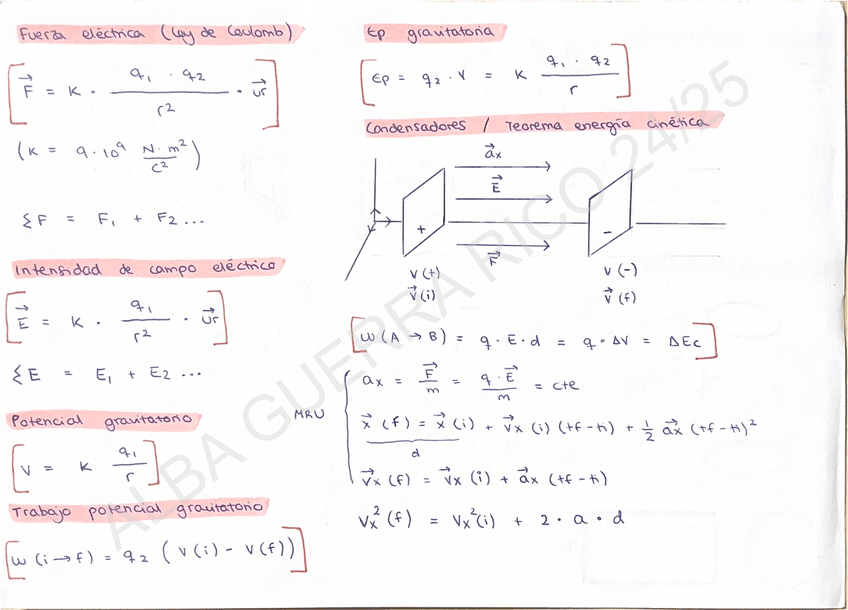 Fuerza eléctrica (Ley de Coulomb)
[F⃗ = K · q₁ · q₂ / r² · ur⃗]
(K = 9·10⁹ N·m² / C²)
ΣF = F₁ + F₂ ...
Intensidad de campo eléctrico
[E⃗ = K · q₁ / r² · ur⃗]
ΣE = E₁ + E₂ ...
Potencial gravitatorio
[V = K q₁ / r]
Trabajo potencial gravitatorio
[W (i → f) = q₂ (V(i) - V(f))]
Ep gravitatoria
[Ep = q₂ · V = K q₁ · q₂ / r]
Condensadores / Teorema energía cinética
a⃗x
E⃗
+ -
F⃗
V (+) V (-)
v⃗ (i) v⃗ (f)
[W (A → B) = q · E · d = q · ΔV = ΔEc]
ax = F⃗ / m = q · E⃗ / m = cte
MRU x⃗ (f) = x⃗ (i) + v⃗x (i) (tf - ti) + 1/2 a⃗x (tf - ti)²
d
v⃗x (f) = v⃗x (i) + a⃗x (tf - ti)
Vx² (f) = Vx² (i) + 2 · a · d
ALBA GUERRA RICO 24/25